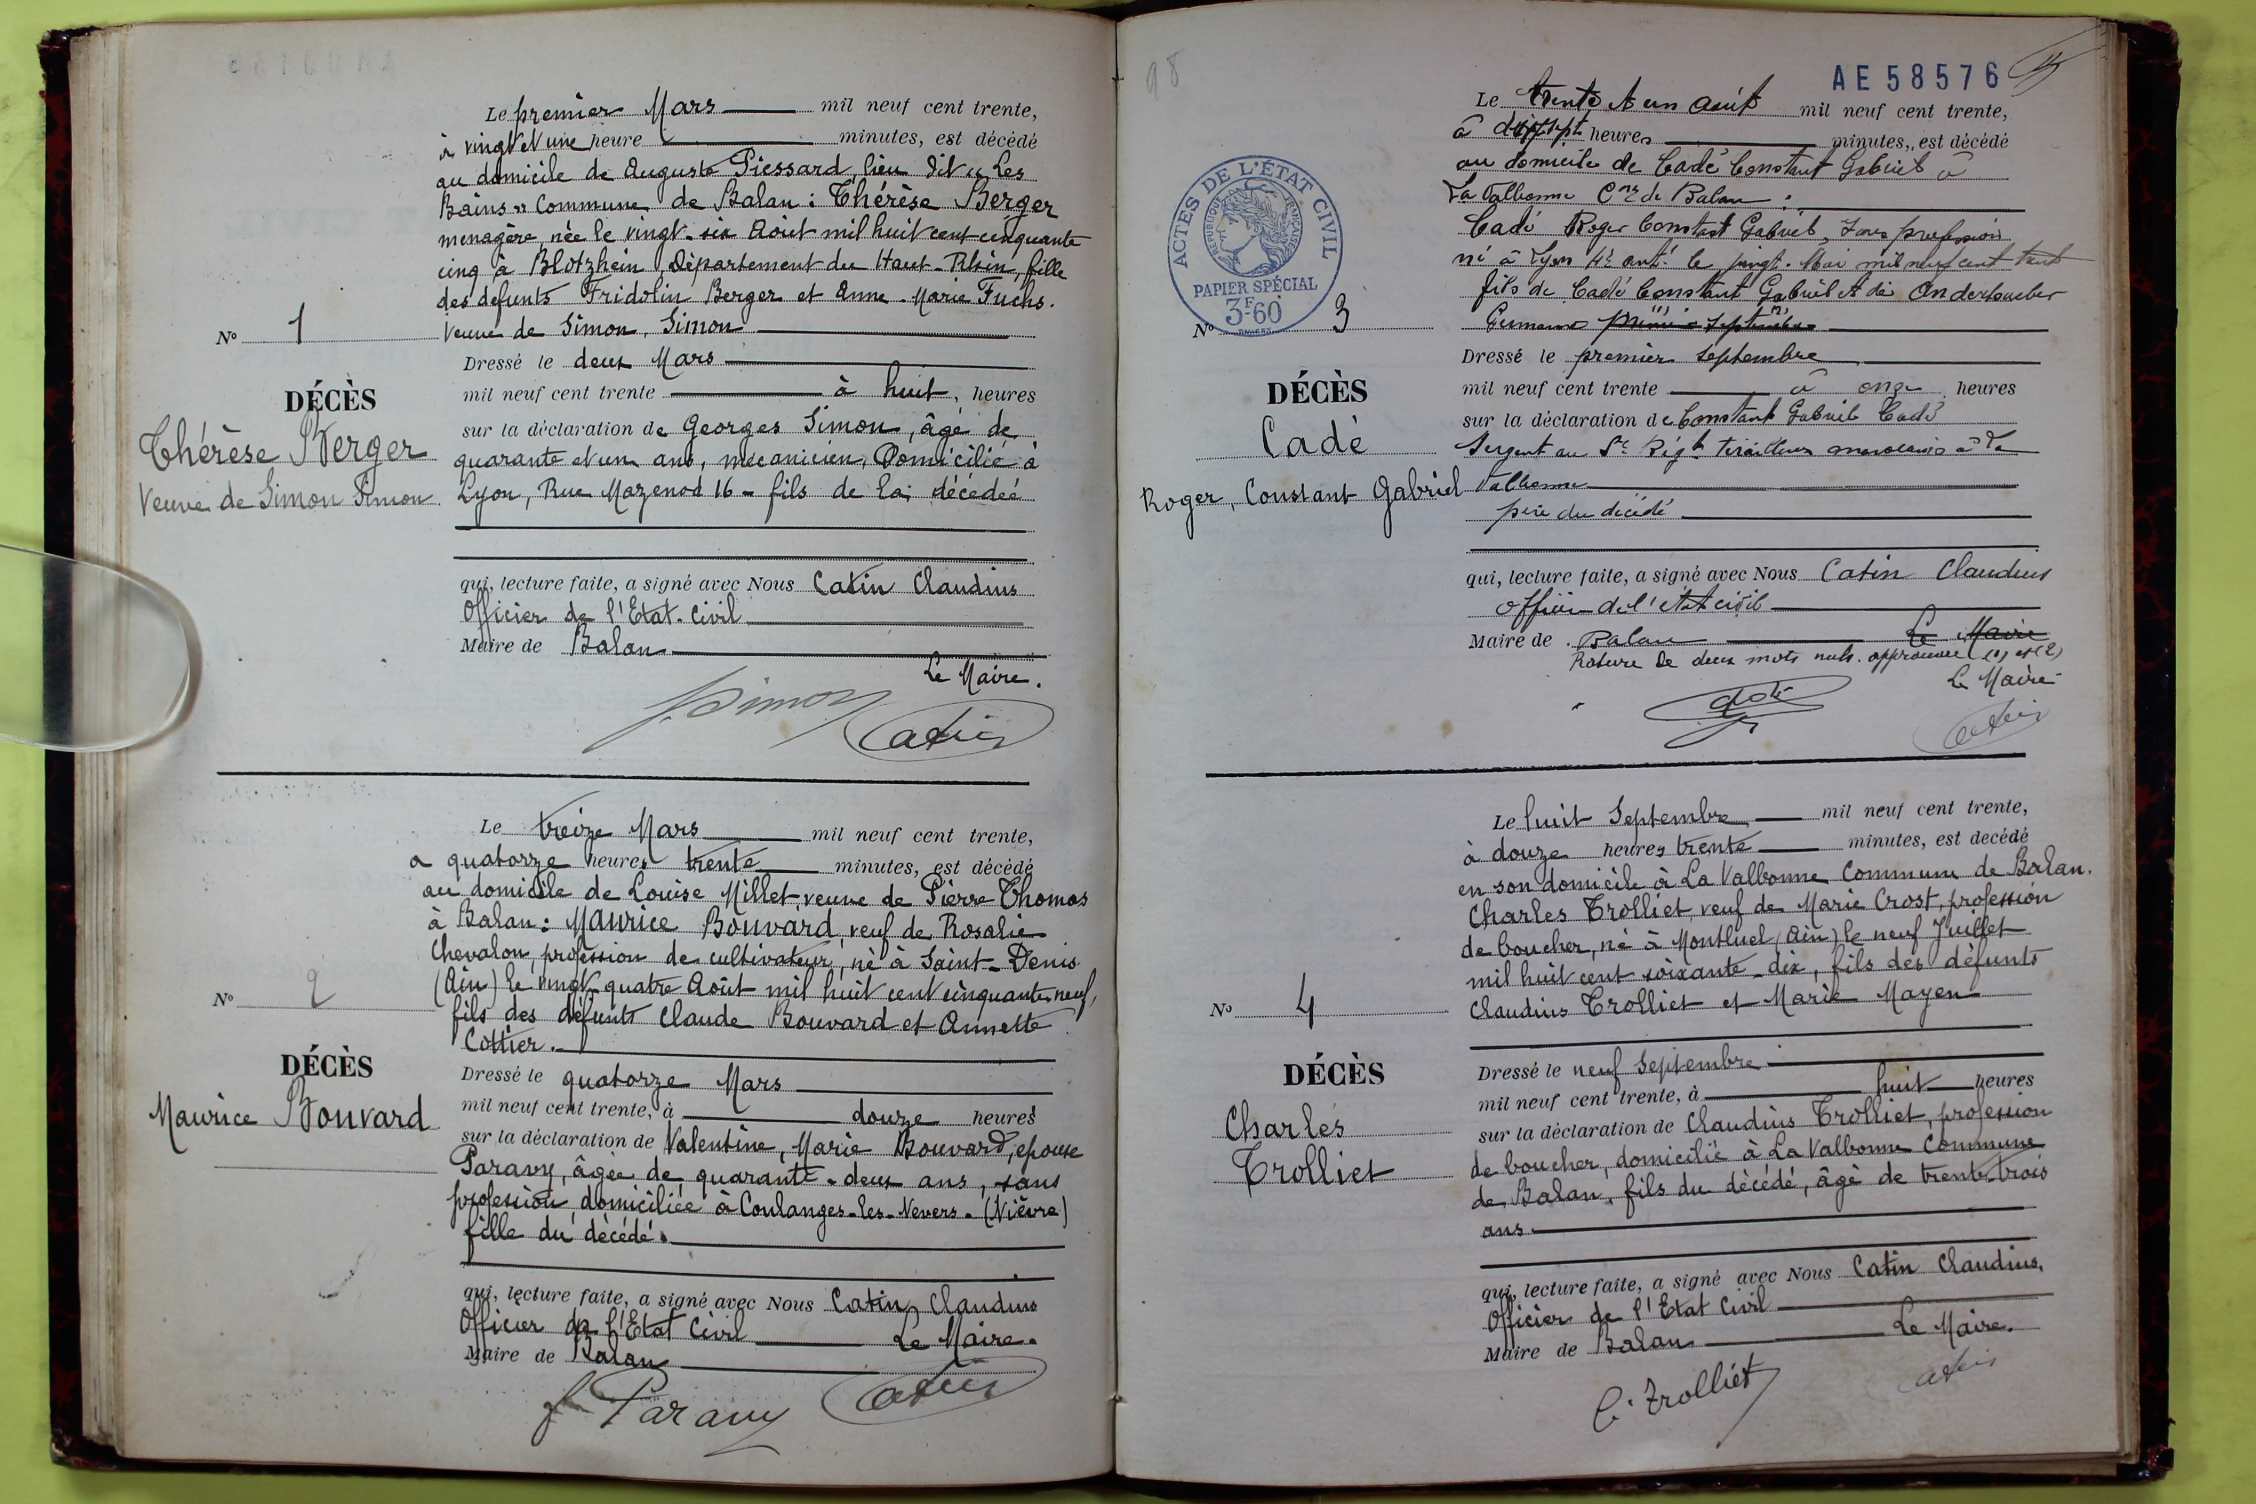 Le premier Mars mil neuf cent trente,
à vingt et une heure minutes, est décédé
au domicile de Auguste Piessard, lieu dit "Les
Bains" Commune de Balan : Thérèse Berger
menagère, née le vingt-six Août mil huit cent cinquante
cinq à Blotzhein, Département du Haut-Rhin, fille
des defunts Fridolin Berger et Anne-Marie Fuchs.
Veuve de Simon, Simon
No 1
Dressé le deux Mars
mil neuf cent trente à huit, heures
DÉCÈS
sur la déclaration de Georges Simon, âgé de
Thérèse Berger
quarante et un ans, mécanicien, Domicilié à
Veuve de Simon Simon
Lyon, Rue Mazenod 16 - fils de la décédée
qui, lecture faite, a signé avec Nous Catin Claudius
Officier de l'Etat-Civil
Maire de Balan
Le Maire.
Simon
Catin
Le treize Mars mil neuf cent trente,
a quatorze heures trente minutes, est décédé
au domicile de Louise Millet, veuve de Pierre Thomas
à Balan : Maurice Bouvard, veuf de Rosalie
Chevalon, profession de cultivateur, né à Saint-Denis
(Ain) le vingt-quatre Août mil huit cent cinquante neuf,
fils des défunts Claude Bouvard et Annette
Cottier.
No 2
DÉCÈS
Maurice Bouvard
Dressé le quatorze Mars
mil neuf cent trente, à douze heures
sur la déclaration de Valentine, Marie Bouvard, epouse
Paravy, âgée de quarante-deux ans, sans
profession domiciliée à Coulanges-les-Nevers. (Nièvre)
fille du décédé.
qui, lecture faite, a signé avec Nous Catin Claudius
Officier de l'Etat Civil Le Maire.
Maire de Balan
Paravy
Catin
98
AE58576
Le trente et un août mil neuf cent trente,
à heures minutes, est décédé
au domicile de Cadé Constant Gabriel à
La Valbonne Cne de Balan :
Cadé Roger Constant Gabriel, sans profession
né à Lyon le vingt Mai mil neuf cent trente
fils de Cadé Constant Gabriel et de
Germaine premier Septembre
ACTES DE L'ÉTAT CIVIL
RÉPUBLIQUE FRANÇAISE
PAPIER SPÉCIAL
3F60
No 3
Dressé le premier Septembre
mil neuf cent trente à onze heures
DÉCÈS
sur la déclaration de Constant Gabriel Cadé
Cadé
Sergent au Régt tirailleurs marocains à La
Roger, Constant Gabriel
Valbonne
père du décédé
qui, lecture faite, a signé avec Nous Catin Claudius
Officier de l'état civil
Maire de Balan Le Maire
Rature de deux mots nuls. approuvée (1) et (2)
Le Maire
Cadé
Catin
Le huit Septembre mil neuf cent trente,
à douze heures trente minutes, est decédé
en son domicile à La Valbonne Commune de Balan.
Charles Trolliet, veuf de Marie Crost, profession
de boucher, né à Montluel (Ain) le neuf Juillet
mil huit cent soixante-dix, fils des défunts
Claudius Trolliet et Marie Mayen
No 4
DÉCÈS
Charles
Trolliet
Dressé le neuf Septembre
mil neuf cent trente, à huit heures
sur la déclaration de Claudius Trolliet, profession
de boucher, domicilié à La Valbonne Commune
de Balan, fils du décédé, âgé de trente-trois
ans.
qui, lecture faite, a signé avec Nous Catin Claudius,
Officier de l'Etat Civil
Maire de Balan Le Maire.
C. Trolliet
Catin